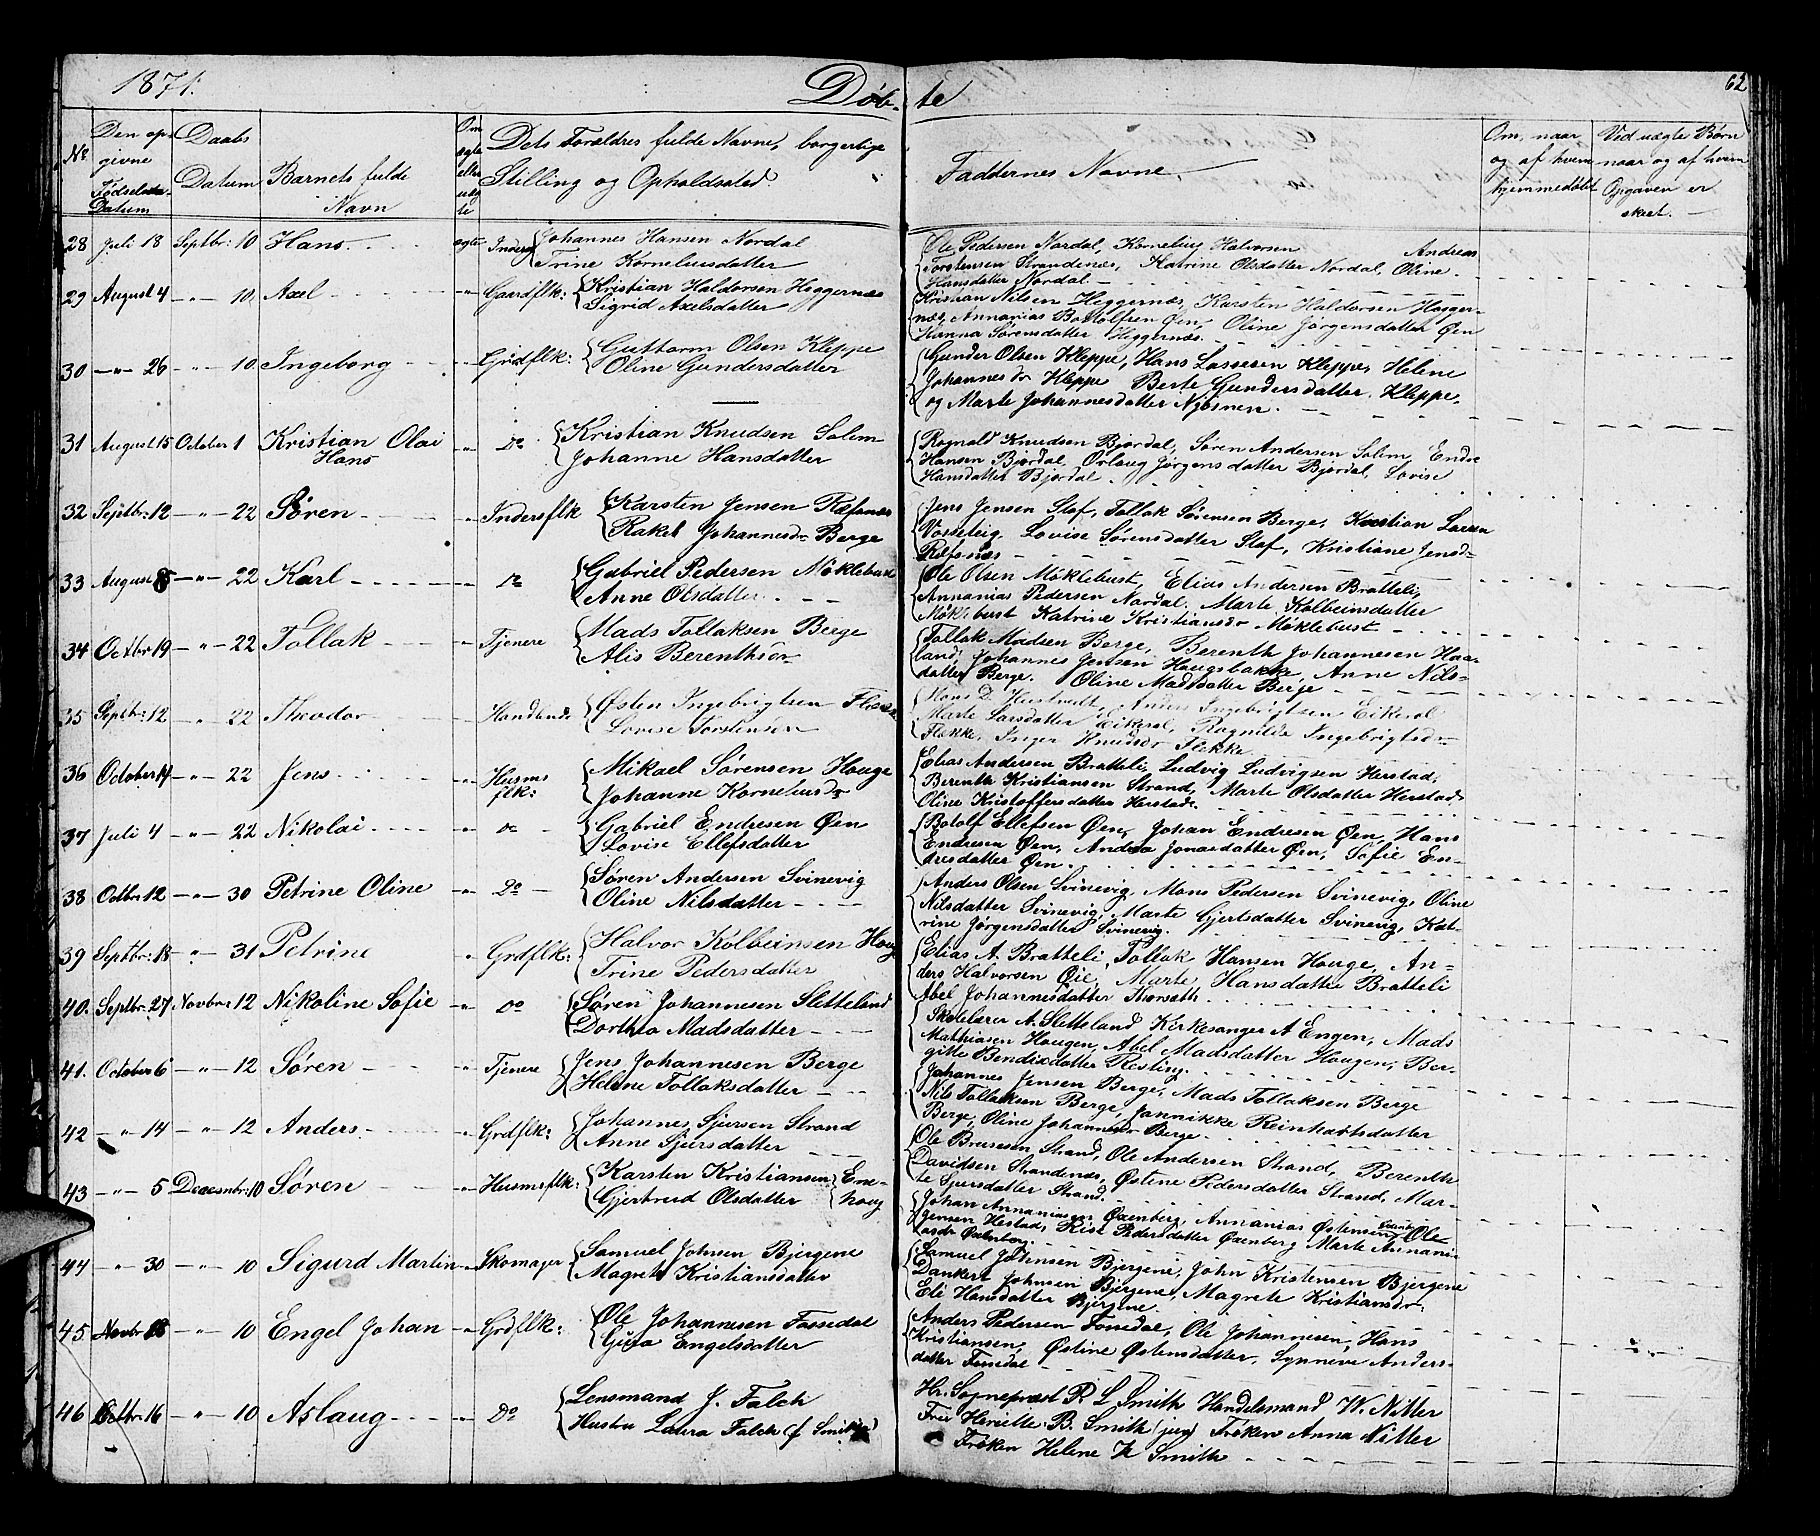 1871.
Døb-te
62
No
Den op-
givne
Fødsels-
Datum
Daabs
Datum
Barnets fulde
Navn
Om
ægte
eller
uæg
te
Dets Forældres fulde Navne, borgerlige
Stilling og Opholdssted.
Faddernes Navne,
Om, naar
og af hvem
hjemmedøbt
Ved uægte Børn
naar og af hvem
Opgaven er
skeet.
28 Juli 18 Septbr: 10 Hans ægte Inders Johannes Hansen Nordal
Trine Korneliusdatter
Ole Pedersen Nordal, Kornelius Halvorsen Andreas
Torstensen Strandenæs, Katrine Olsdatter Nordal, Oline
Hansdatter Nordal
29 August 4 -"- 10. Axel " Gaardflk: Kristian Haldorsen Heggernæs
Sigrid Axelsdatter
Kristian Nilsen Heggernæs, Karsten Haldorsen Hegger-
næs, Annanias Bottolfsen Øen, Oline Jørgensdatter Øen
Hanna Sørensdatter Heggernæs.
30 -"- 26 -"- 10 Ingeborg " Grdflk: Guttorm Olsen Kleppe
Oline Gundersdatter
Gunder Olsen Kleppe, Hans Lassesen Kleppe, Helene
Johannesdr Kleppe Berte Gundersdatter Kleppe,
og Marte Johannesdatter
31 August 15 October 1 Kristian Olai
Hans " Do Kristian Knudsen Solem
Johanne Hansdatter
Rognald Knudsen Bjordal, Søren Andersen Solem, Endre
Hansen Bjordal, Orlaug Jørgensdatter Bjordal, Lovise
Hansdatter Bjordal.
32 Septbr: 12 -"- 22 Søren " Indersflk Karsten Jensen Refsnæs
Rakel Johannesdr Berge
Jens Jensen Slaf, Tollak Sørensen Berge, Kristian Larsen
Vasseteig, Lovise Sørensdatter Slaf, Kristiane Jensd-
Refsnæs
33 August 8 -"- 22 Karl " Do Gabriel Pedersen Møklebust
Anne Olsdatter
Ole Olsen Møklebust, Elias Andersen Bratteli,
Annanias Pedersen Nordal. Marte Kolbeinsdatter
Møklebust Katrine Kristiansdr Møklebust
34 Octbr 19 -"- 22 Tollak " Tjenere Mads Tollaksen Berge
Alis Berenthsdr
Tollak Madsen Berge, Berenth Johannesen Haa-
land, Johannes Jensen Haugsbakke, Anne Nils-
datter Berge. Oline Madsdatter Berge
35 Septbr: 12 " 22 Theodor " Handlende Østen Ingebrigtsen Flekke
Lovise Torstensdr
Hans D. Hustvedt, Anders Ingebrigtsen Eikerol
Marte Larsdatter Eikerol, Rognilda Ingebrigtsdr
Flekke, Inger Knudsdr Flekke
36 October 14 -"- 22 Jens " Husms
flk: Mikael Sørensen Houge
Johanne Korneliusdr
Elias Andersen Bratteli, Ludvig Ludvigsen Herstad,
Berenth Kristiansen Strand, Marte Olsdatter Herstad,
Oline Kristoffersdatter Herstad.
37 Juli 4 -"- 22 Nikolai " Do Gabriel Endresen Øen
Lovise Ellefsdatter
Botolf Ellefsen Øen, Johan Endresen Øen, Hans
Endresen Øen, Andrea Jonasdatter Øen, Sofie En-
dresdatter Øen.
38 Octbr: 12 -"- 30 Petrine Oline " Do Søren Andersen Svinevig
Oline Nilsdatter
Anders Olsen Svinevig, Mons Pedersen Svinevig, Oline
Nilsdatter Svinevig, Marte Gjertsdatter Svinevig, Kat-
rine Jørgensdatter Svinevig.
39 Septbr: 18 -"- 31 Petrine " Grdflk: Halvor Kolbeinsen Houg
Trine Pedersdatter
Elias A. Bratteli, Tollak Hansen Houge, An-
ders Halvorsen Øie, Marte Hansdatter Bratteli
Abel Johannesdatter Thorsæth
40. Septbr: 27 Novbr: 12 Nikoline Sofie " Do Søren Johannesen Sletteland
Dorthea Madsdatter
Skolelærer A. Sletteland, Kirkesanger A Engen, Mads
Mathiasen Hougen, Abel Madsdatter Hougen, Ber-
gitte Bendixdatter Risting.
41. October 6 -"- 12 Søren " Tjenere Jens Johannesen Berge
Helene Tollaksdatter
Johannes Jensen Berge, Mads Tollaksen Berge
Nils Tollaksen Berge, Jannikke Reinhartsdatter
Berge, Oline Johannesdr Berge
42 -"- 14 -"- 12 Anders " Grdflk: Johannes Sjursen Strand
Anne Sjursdatter
Ole Brusesen Strand, Ole Andersen Strand, Berenth
Davidsen Strandenæs, Østine Pedersdatter Strand, Mar-
te Sjursdatter Strand.
43 -"- 5 Decembr: 10 Søren " Husmsflk: Karsten Kristiansen
Gjertrud Olsdatter Ene-
houg
Johan Annaniasen Oxenberg, Annanias Østensen Ole
Jensen Hestad, Rise Pedersdatter Oxenberg Marte Annani-
asdr Oxenberg.
44 -"- 30 -"- 10 Sigurd Martin " Skomager Samuel Johnsen Bjergene
Magrete Kristiansdatter
Samuel Johnsen Bjergene, John Kristensen Bjergene
Dankert Johnsen Bjergene, Magrete Kristiansdr
Eli Hansdatter Bjergene.
45 Novbr -"- 10 Engel Johan " Grdflk: Ole Johannesen Fossedal
Guro Engelsdatter
Anders Pedersen Fossedal, Ole Johannesen, Hans
Kristiansen, Østine Østensdatter, Synneve Anders-
datter Fossedal
46 Octbr: 16 -"- 10 Aslaug " Do Lensmand J. Falch
Hustru Laura Falch (f Smith)
Hr. Sognepræst P. L Smith Handelsmand W. Nitter
Fru Henriette B. Smith (jun) Frøken Anna Nitter
Frøken Helene K Smith